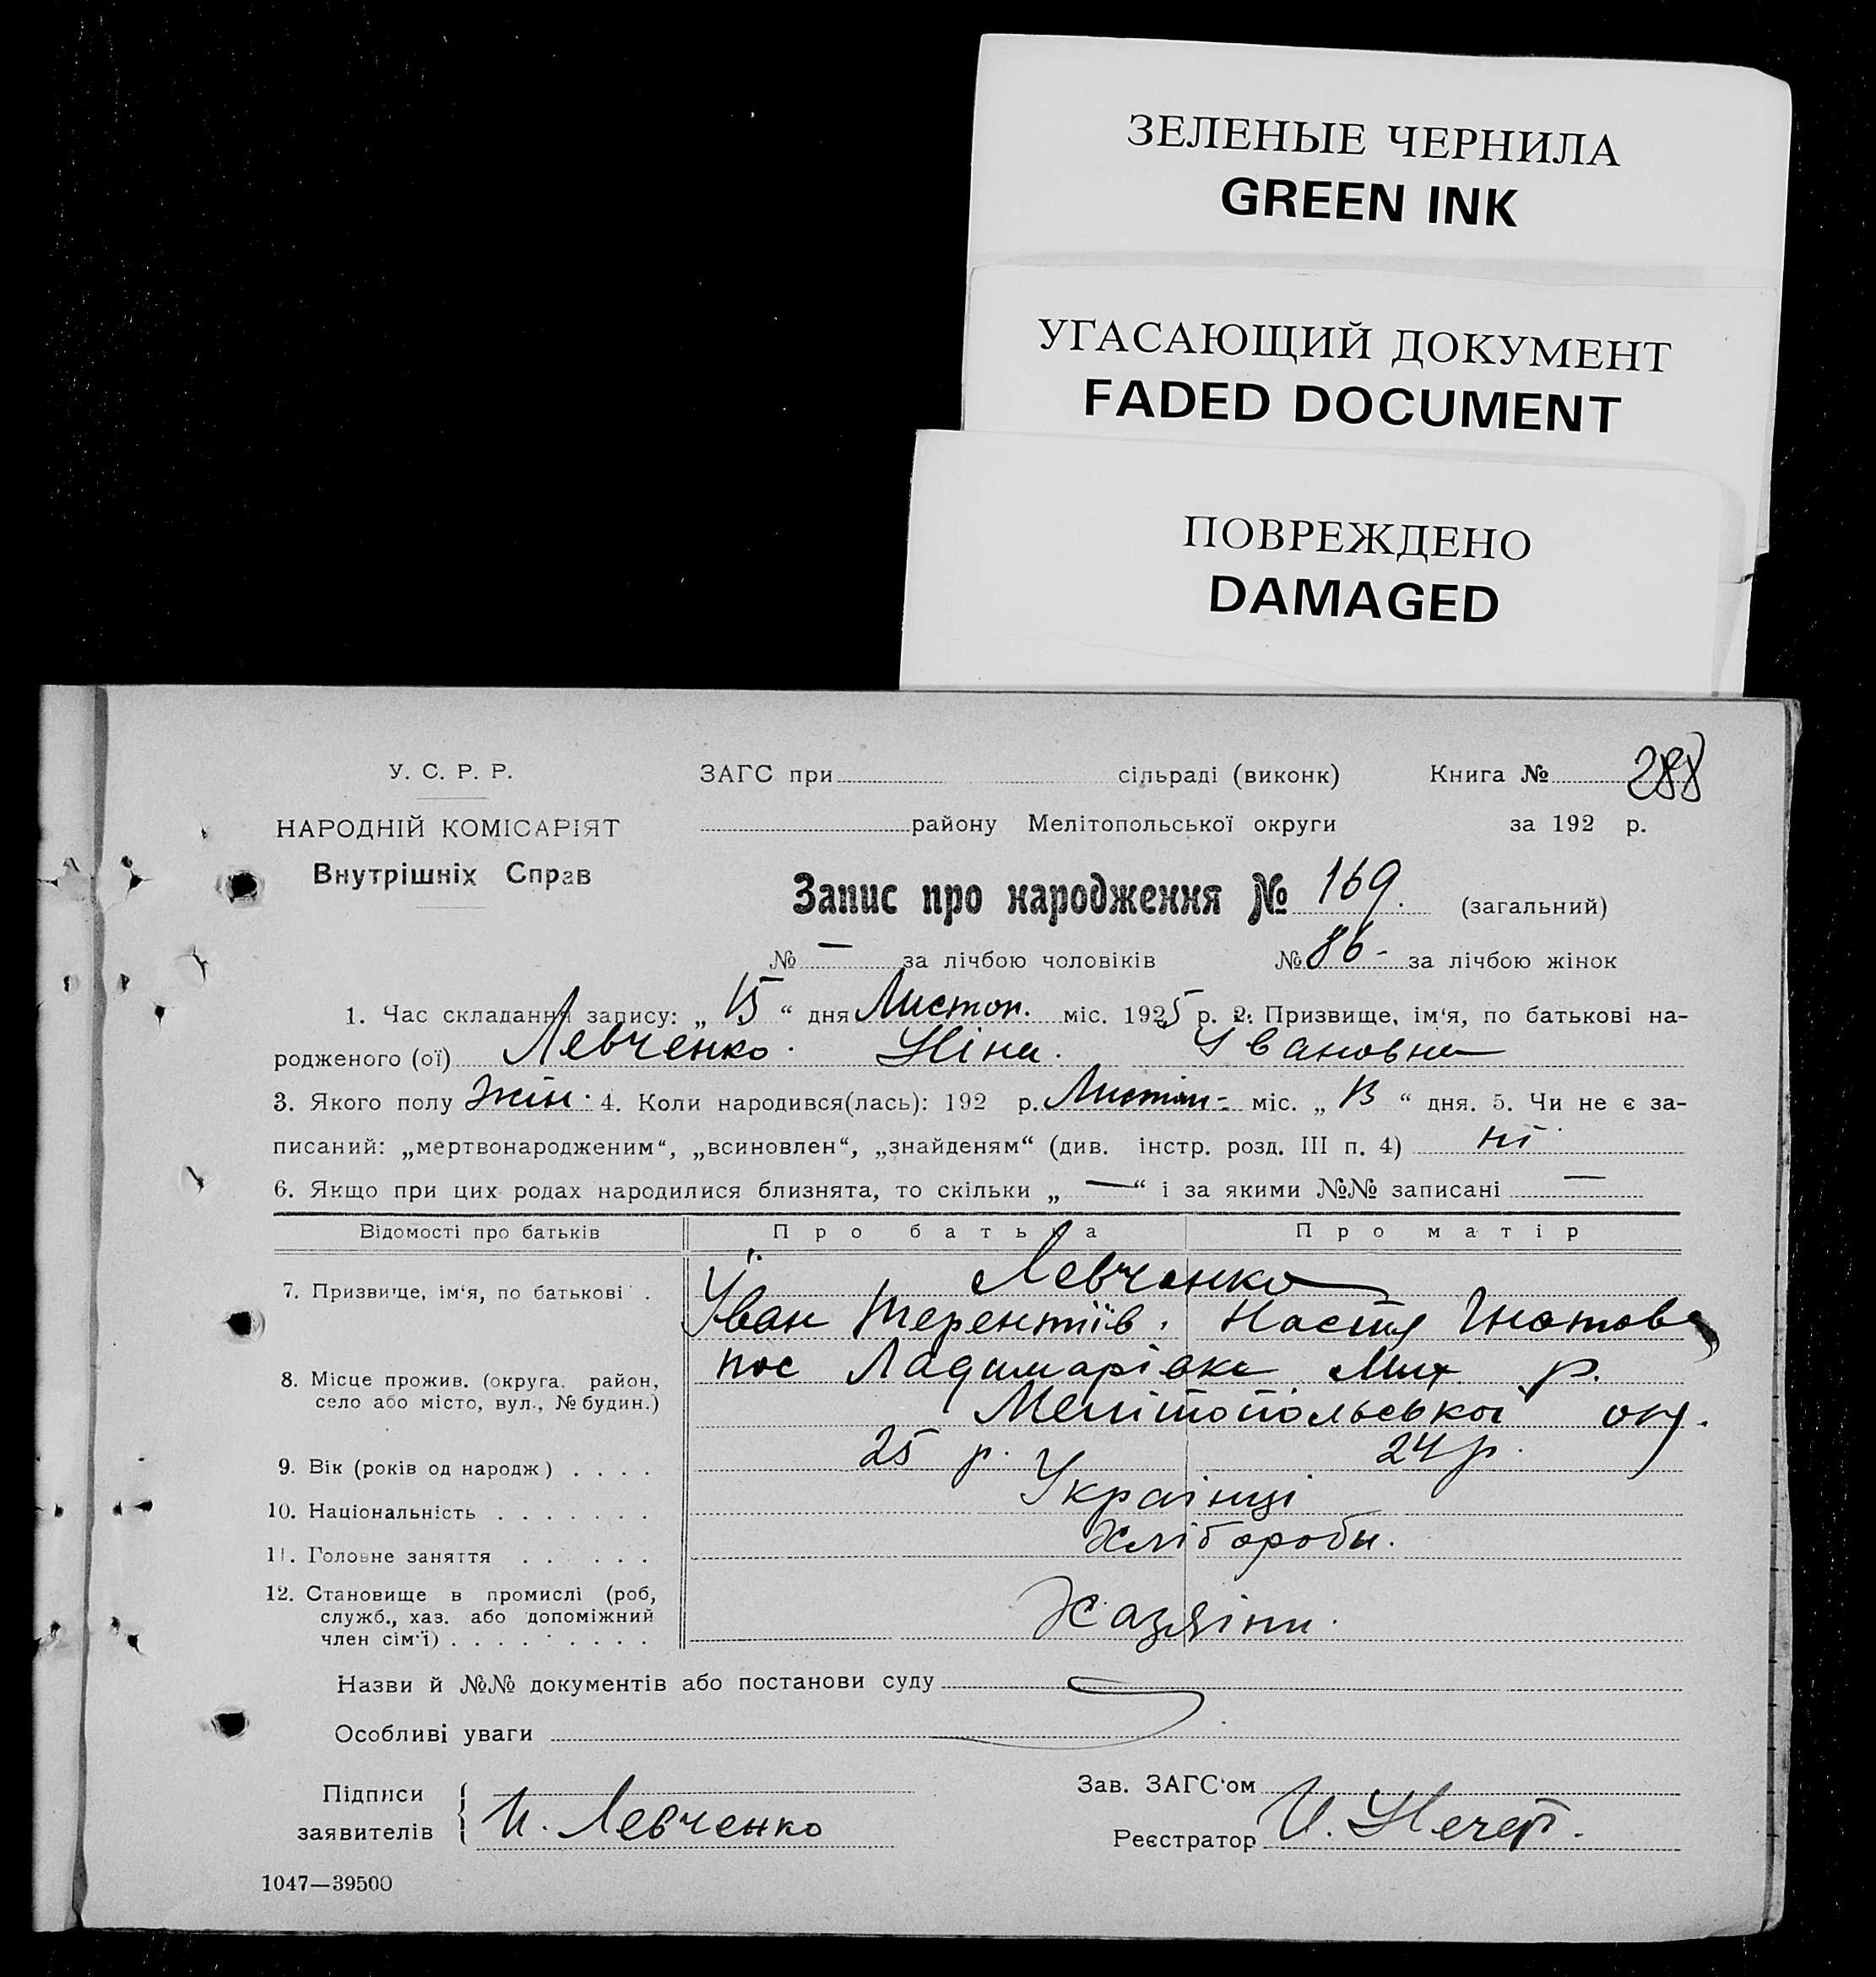 ЗЕЛЕНЫЕ ЧЕРНИЛА
GREEN INK
УГАСАЮЩИЙ ДОКУМЕНТ
FADED DOCUMENT
ПОВРЕЖДЕНО
DAMAGED
У. С. Р. Р. ЗАГС при сільраді (виконк) Книга № 288
НАРОДНІЙ КОМІСАРІЯТ району Мелітопольської округи за 192 р.
Внутрішніх Справ
Запис про народження № 169. (загальний)
№ — за лічбою чоловіків № 86 - за лічбою жінок
1. Час складання запису: „ 15 “ дня Листоп. міс. 1925 р. 2. Призвище, ім‘я, по батькові на-
родженого (ої) Левченко. Ніна. Івановна
3. Якого полу жін. 4. Коли народився(лась): 192 р. Листоп- міс. „ “ дня. 5. Чи не є за-
писаний: „мертвонародженим“, „всиновлен“, „знайденям“ (див. інстр. розд. III п. 4) ні
6. Якщо при цих родах народилися близнята, то скільки „ — “ і за якими №№ записані —
Відомості про батьків Про батька Про матір
7. Призвище, ім‘я, по батькові . Левченко
Іван Терентіїв. Настя Гнатова
8. Місце прожив. (округа. район, село або місто, вул., № будин.) пос Мих р.
Мелітопольської окр.
9. Вік (років од народж) . . . . 25 р. 24 р.
10. Національність . . . . . . . Українці
11. Головне заняття . . . . . . Хлібороби.
12. Становище в промислі (роб, служб., хаз. або допоміжний член сім‘ї) . . . . . . . . . Хазяіни.
Назви й №№ документів або постанови суду
Особливі уваги
Підписи заявителів И. Левченко
Зав. ЗАГС‘ом
Реєстратор
1047—39500